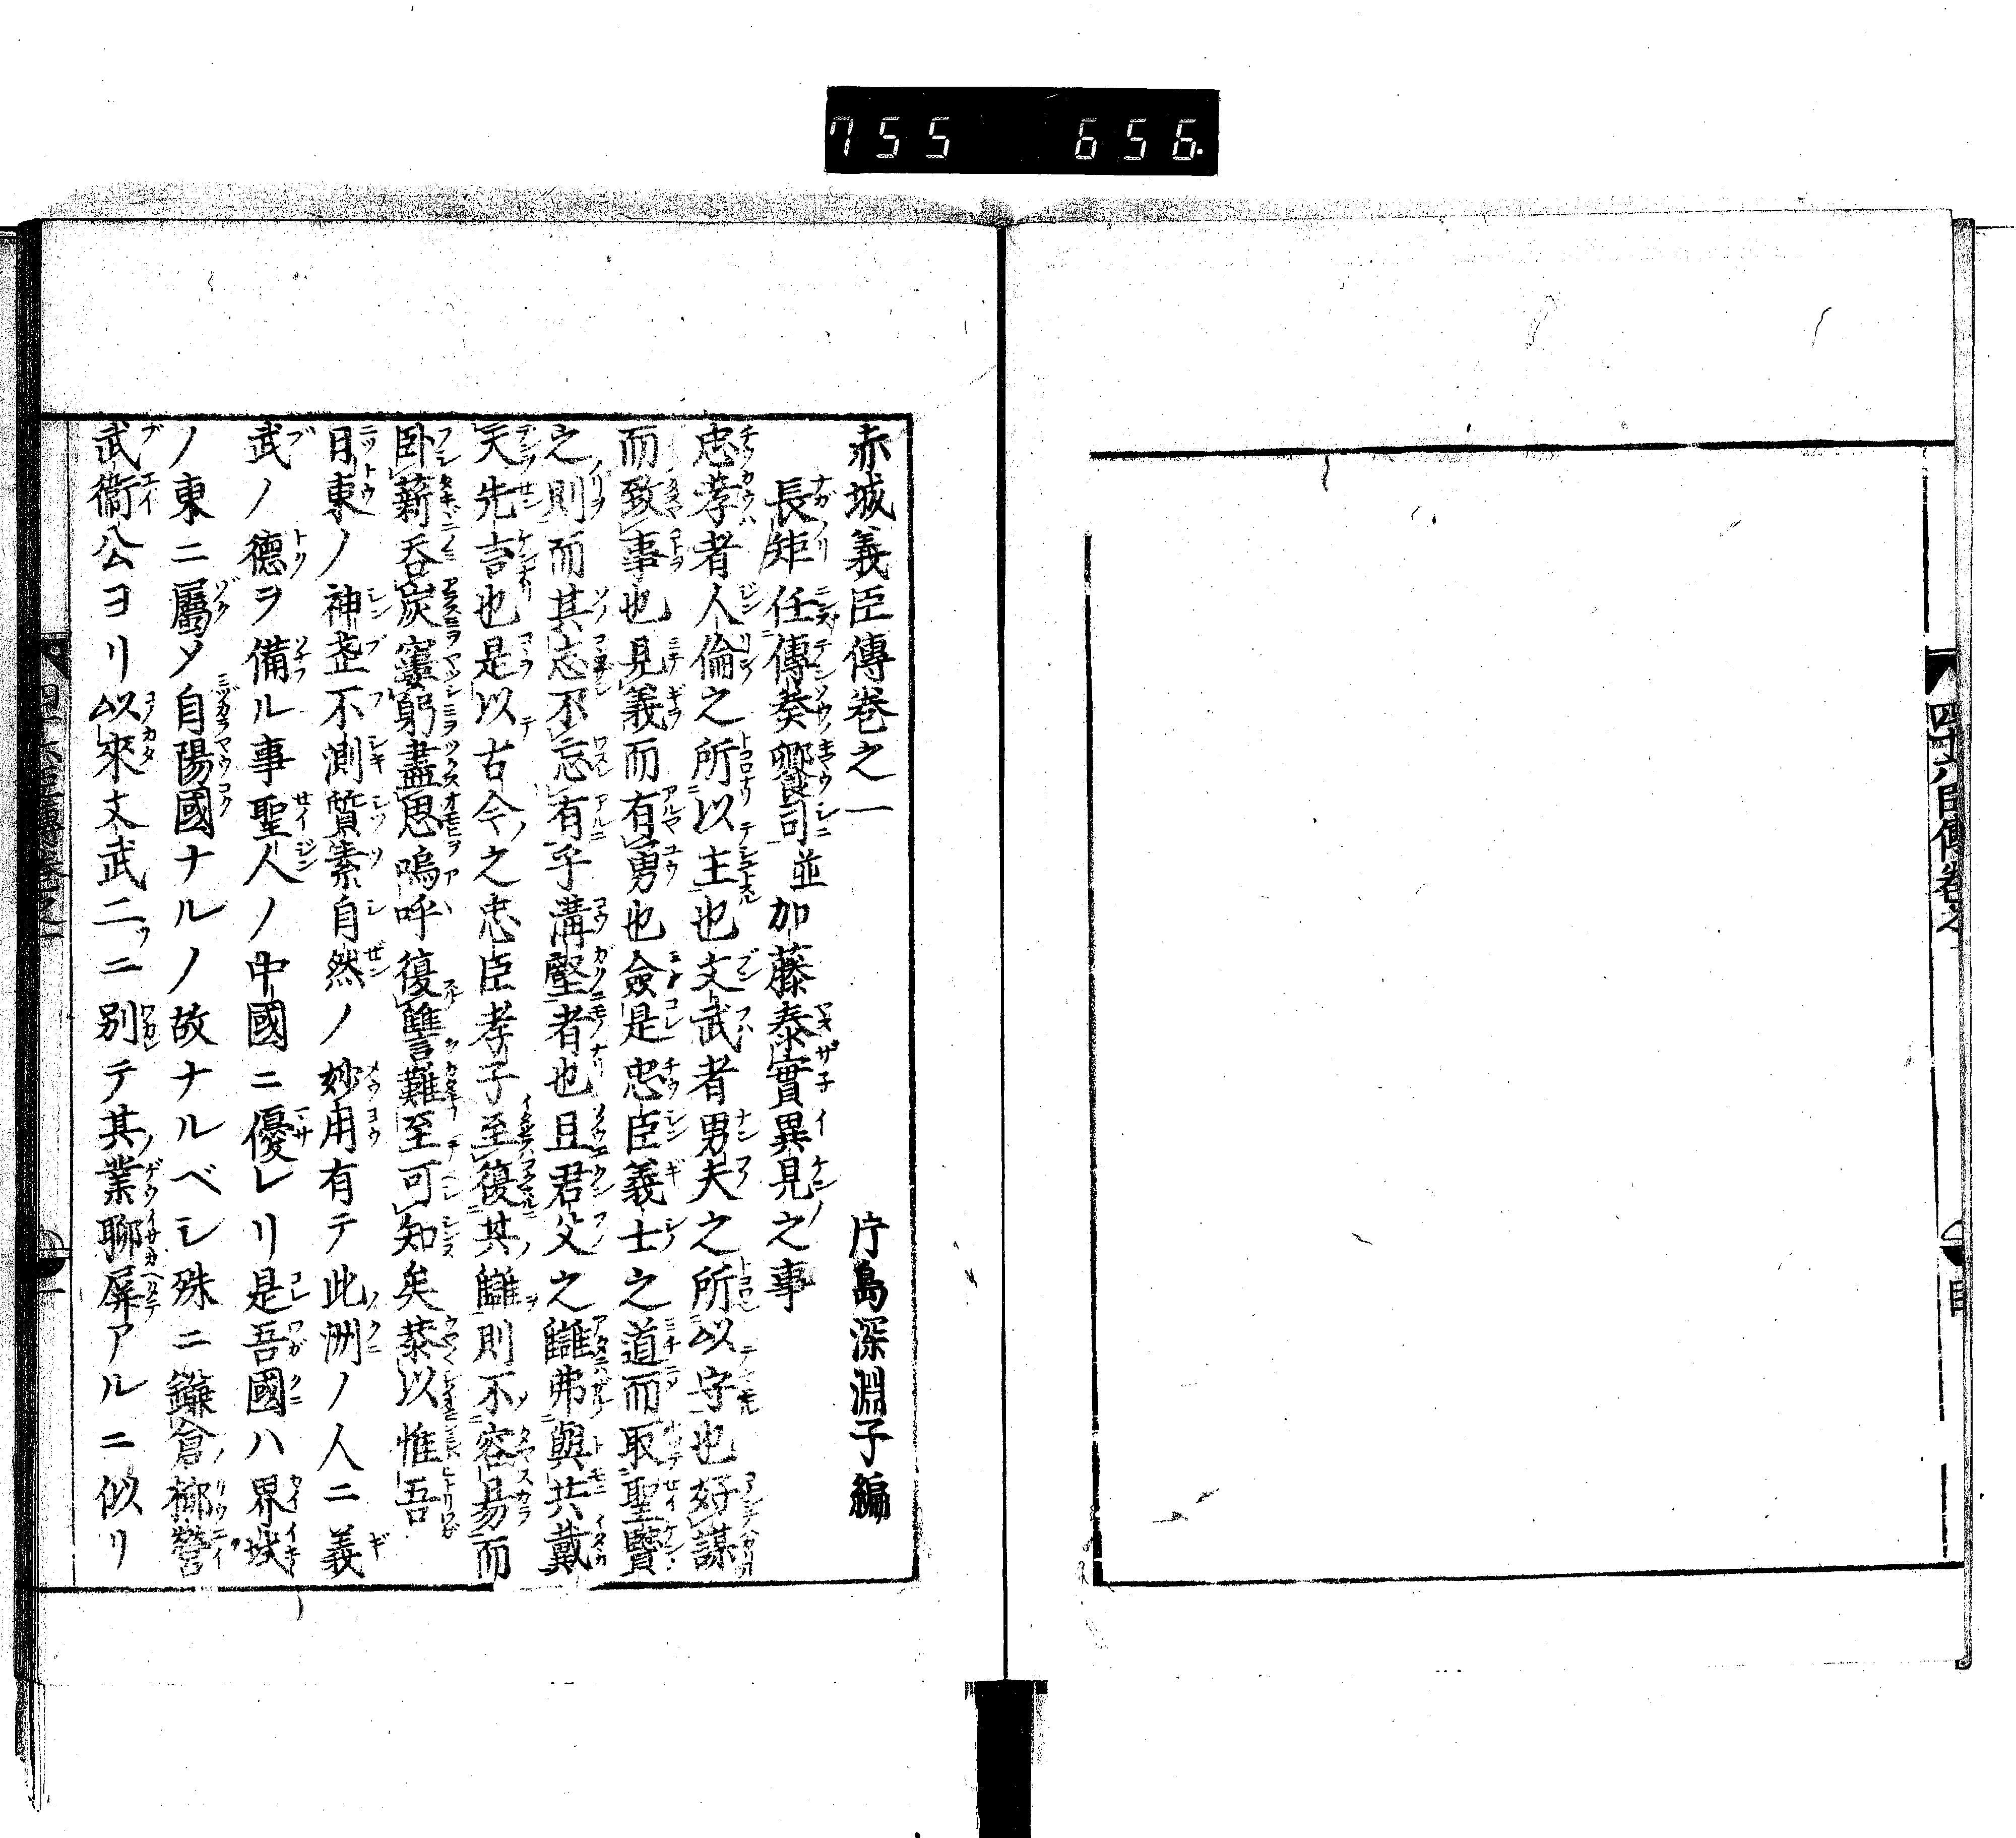 755 656.
四十六臣傳卷之一
目
赤城義臣傳卷之一
片島深淵子編
長矩任傳奏饗司並加藤泰實異見之事
忠孝者人倫之所以主也文武者男夫之所以守也好謀
而致事也見義而有勇也僉是忠臣義士之道而取聖賢
之則而其志不忘有乎溝壑者也且君父之讎弗與共戴
天先言也是以古今之忠臣孝子至復其讎則不容易而
卧薪呑炭窶躬盡思嗚呼復讐難至可知矣恭以惟吾
日東ノ神武不測質素自然ノ妙用有テ此洲ノ人ニ義
武ノ德ヲ備ル事聖人ノ中國ニ優レリ是吾國ハ界域
ノ東ニ屬メ自陽國ナルノ故ナルベシ殊ニ鎌倉柳營
武衞公ヨリ以來文武二ニ別テ其業聊屏アルニ似リ
四十六臣傳卷之一
一